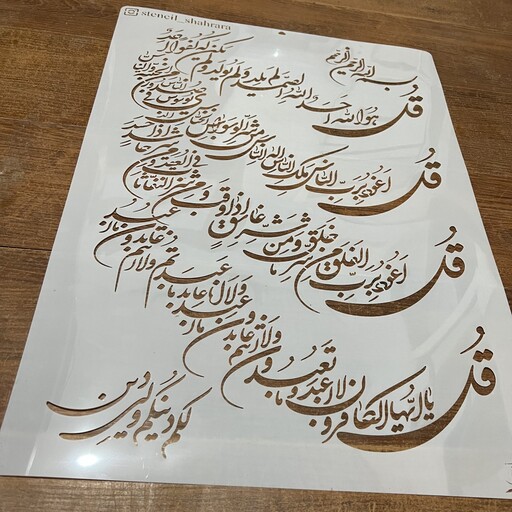 stencil_shahrara
بسم الله الرحمن الرحیم
قل هو الله احد الله الصمد لم یلد ولم یولد ولم یکن له کفوا احد
قل اعوذ برب الناس ملک الناس اله الناس من شر الوسواس الخناس الذی یوسوس فی صدور الناس من الجنة والناس
قل اعوذ برب الفلق من شر ما خلق و من شر غاسق اذا وقب و من شر النفاثات فی العقد و من شر حاسد اذا حسد
قل یا ایها الکافرون لا اعبد ما تعبدون ولا انتم عابدون ما اعبد ولا انا عابد ما عبدتم ولا انتم عابدون ما اعبد
لکم دینکم ولی دین